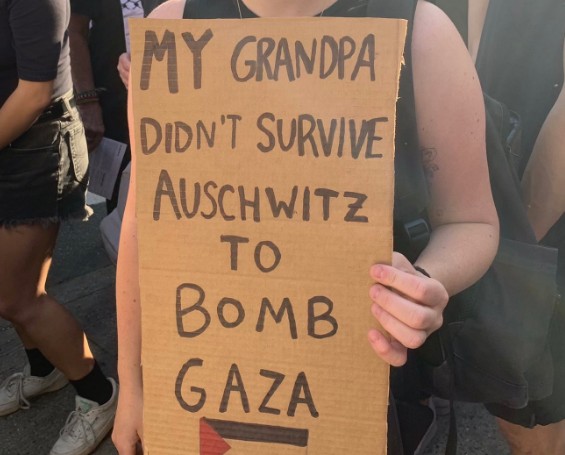 MY GRANDPA
DIDN'T SURVIVE
AUSCHWITZ
TO
BOMB
GAZA